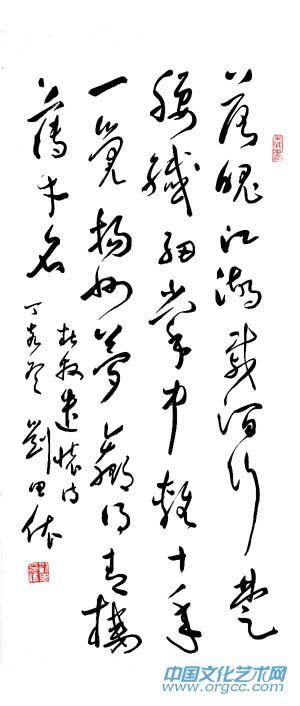 落魄江湖載酒行楚
腰纖細掌中輕十年
一覺揚州夢贏得青樓
薄幸名
杜牧遣懷詩
丁亥冬 劉田依
中国文化艺术网
www.orgcc.com